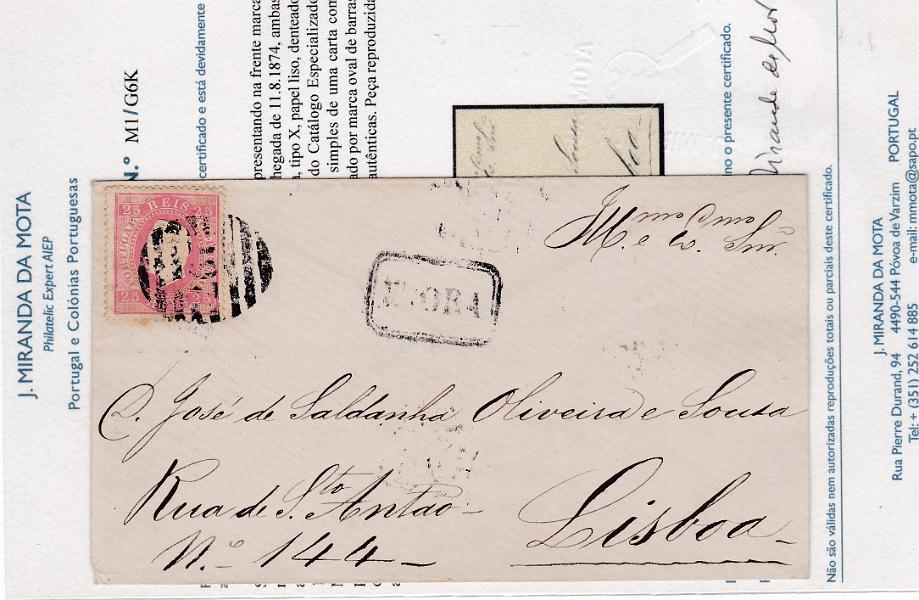 J. MIRANDA DA MOTA
Philatelic Expert AIEP
Portugal e Colónias Portuguesas
N.º M1/G6K
certificado e está devidamente
presentando na frente marca
hegada de 11.8.1874, ambas
, tipo X, papel liso, denteado
do Catálogo Especializado
simples de uma carta com
ado por marca oval de barras
autênticas. Peça reproduzida
MOTA
no o presente certificado.
Não são válidas nem autorizadas reproduções totais ou parciais deste certificado.
J. MIRANDA DA MOTA
Rua Pierre Durand, 94 4490-544 Póvoa de Varzim PORTUGAL
Tel: + (351) 252 614 885 e-mail: mmota@sapo.pt
25 REIS 25
25 25
EVORA
M.mo e Ex.mo Snr.
D. José de Saldanha Oliveira e Sousa
Rua de S.to Antão
N.º 144
Lisboa